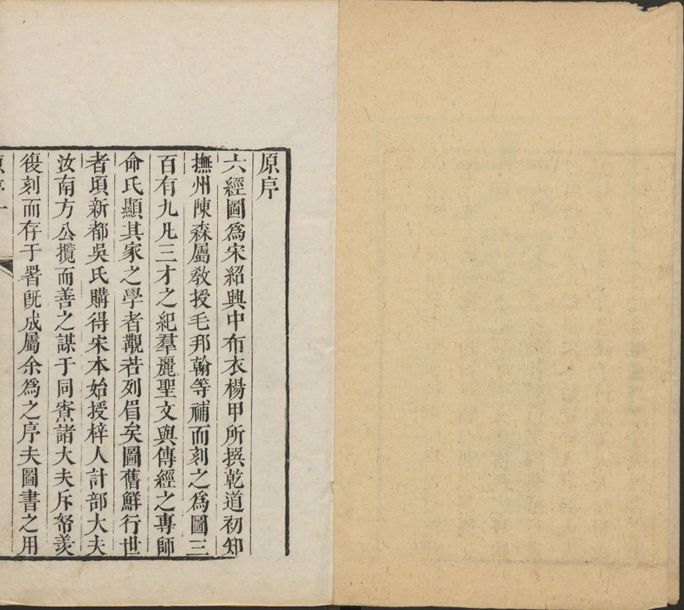 原序
六經圖爲宋紹興中布衣楊甲所撰乾道初知
撫州陳森屬敎授毛邦翰等補而刻之爲圖三
百有九凡三才之紀羣麗聖文與傳經之專師
命氏顯其家之學者覩若列眉矣圖舊鮮行世
者項新都吳氏購得宋本始授梓人計部大夫
汝南方公攬而善之謀于同寮諸大夫斥帑羨
復刻而存于署旣成屬余爲之序夫圖書之用